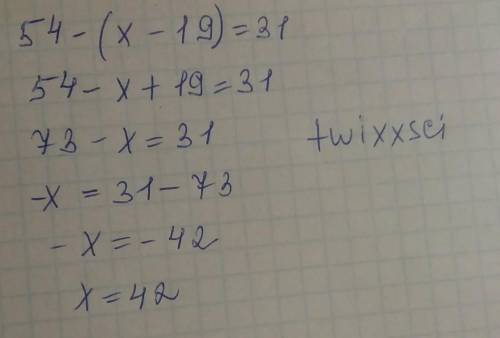 54-(x-19)=31
54-x+19=31
73-x=31
twixxsci
-x=31-73
-x=-42
x=42